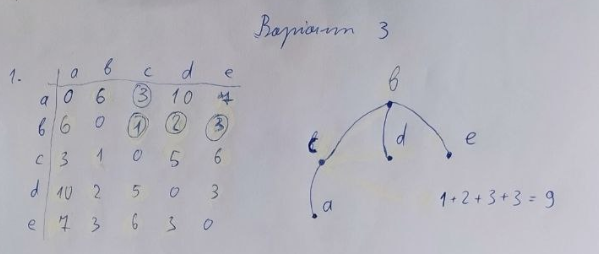 Варіант 3
1.
a b c d e
a 0 6 3 10 7
b 6 0 1 2 3
c 3 1 0 5 6
d 10 2 5 0 3
e 7 3 6 3 0
b
c d e
a
1+2+3+3=9